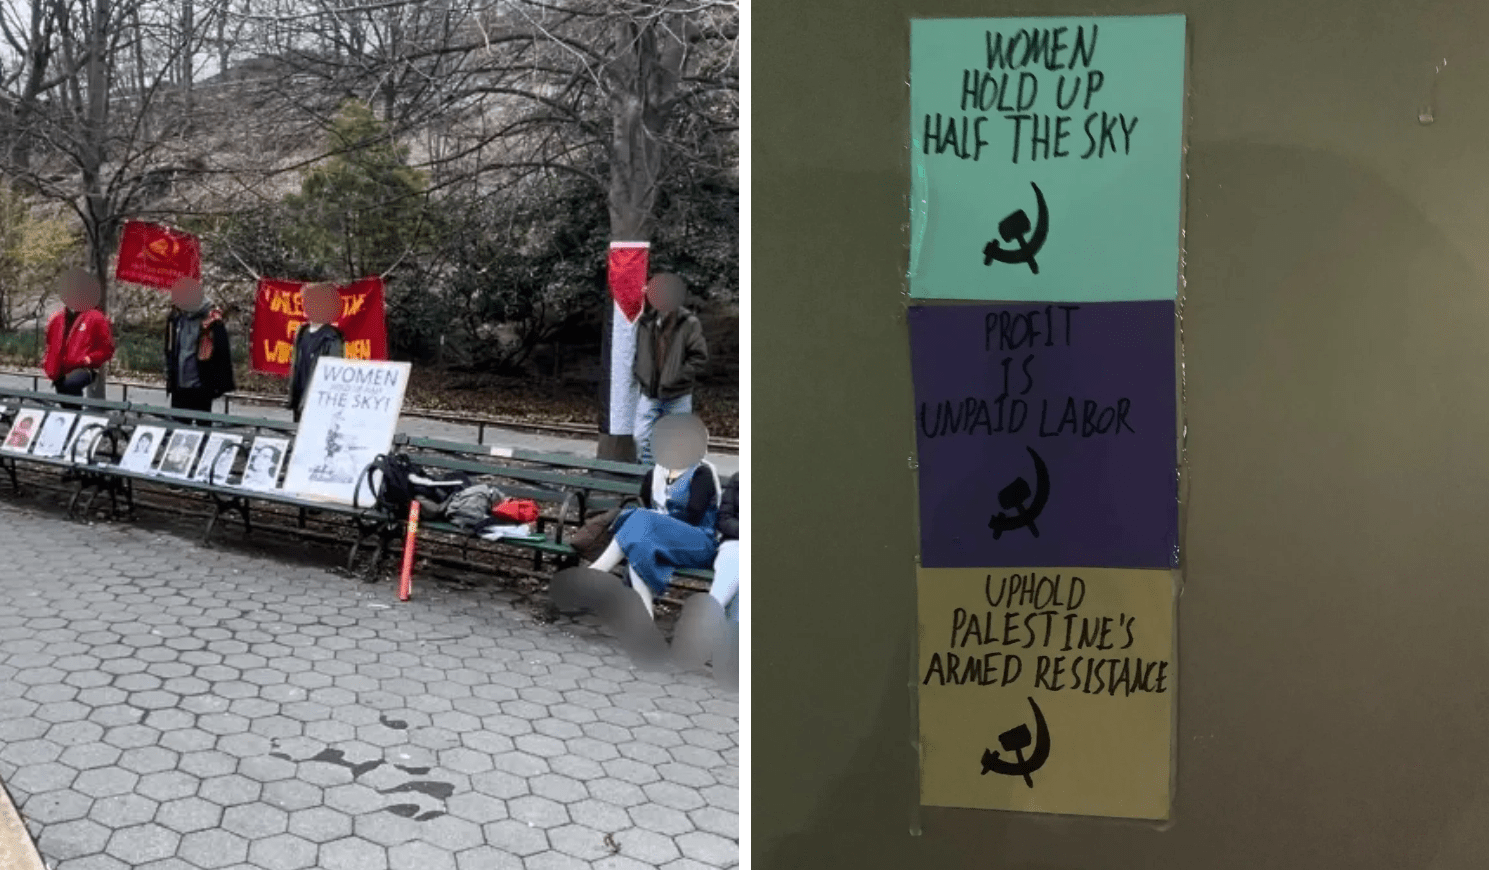 WOMEN
THE SKY!
WOMEN
HOLD UP
HALF THE SKY
PROFIT
IS
UNPAID LABOR
UPHOLD
PALESTINE'S
ARMED RESISTANCE